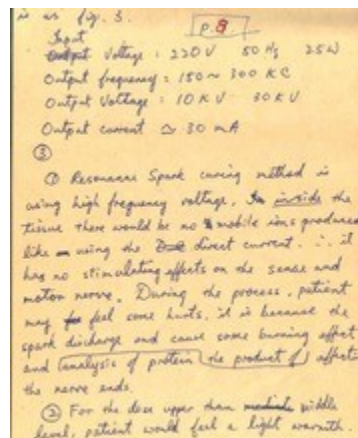 is as fig. 3.
p. 8
Input
Output Voltage : 220V 50 Hz 25W
Output frequency : 150 ~ 300 KC
Output Voltage : 10 KV 30 KV
Output current ≃ 30 mA
③
① Resonance Spark curing method is
using high frequency voltage. In inside the
tissue there would be no mobile ions produce
like using the direct current. ∴ it
has no stimulating effects on the sense and
motor nerve. During the process, patient
may feel some hurts, it is because the
spark discharge and cause some burning effect
and (analysis of protein) the product of affects
the nerve ends.
② For the dose upper than mediate middle
level, patient would feel a light warmth.